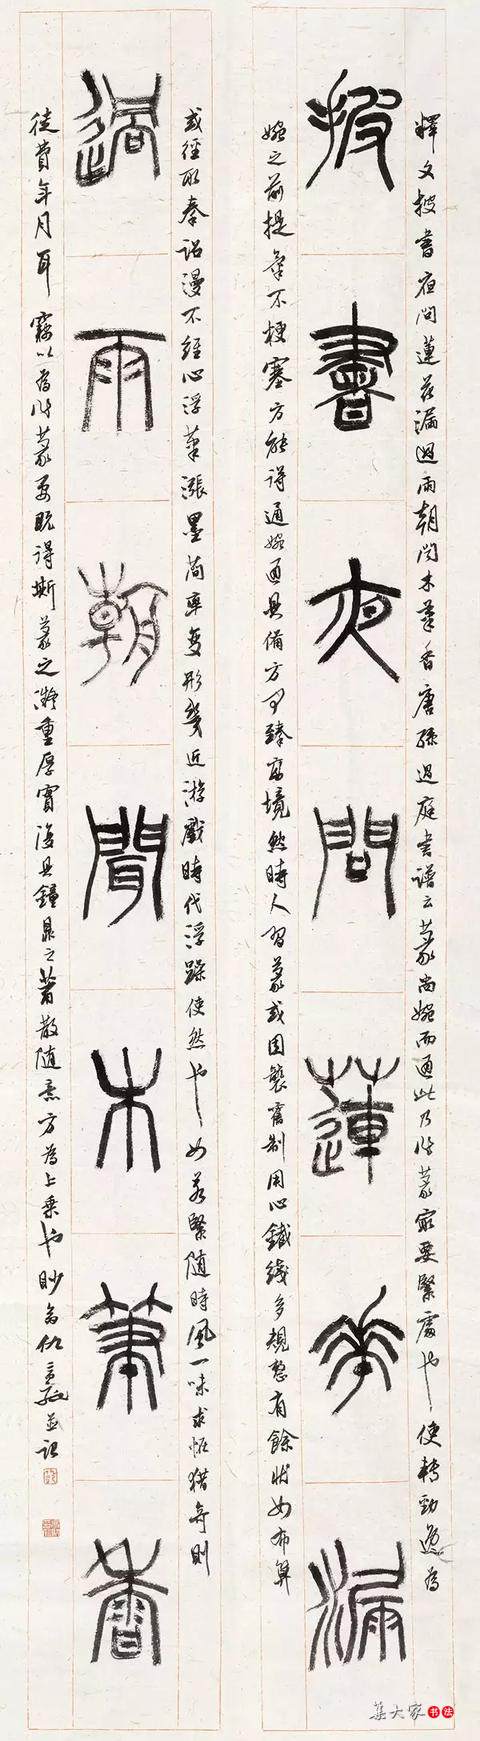 釋文披書夜問蓮花漏過雨朝聞木筆香唐孫過庭書譜云篆尚婉而通此乃作篆最要緊處也使轉勁逸為
披書夜問蓮華漏
婉之前提筆不梗塞方能得通婉通具備方可臻高境然時人習篆或因襲舊制用心鐵綫多規整有餘狀如布算
或徑取秦詔漫不經心浮筆漲墨簡率變形幾近游戲時代浮躁使然也如若緊隨時風一味求怪獵奇則
過雨朝聞木筆香
徒費年月耳竊以為作篆要既得斯篆之凝重厚實復具鐘鼎之蕭散隨意方為上乘也眇翁仇高馳並記
集大家书法